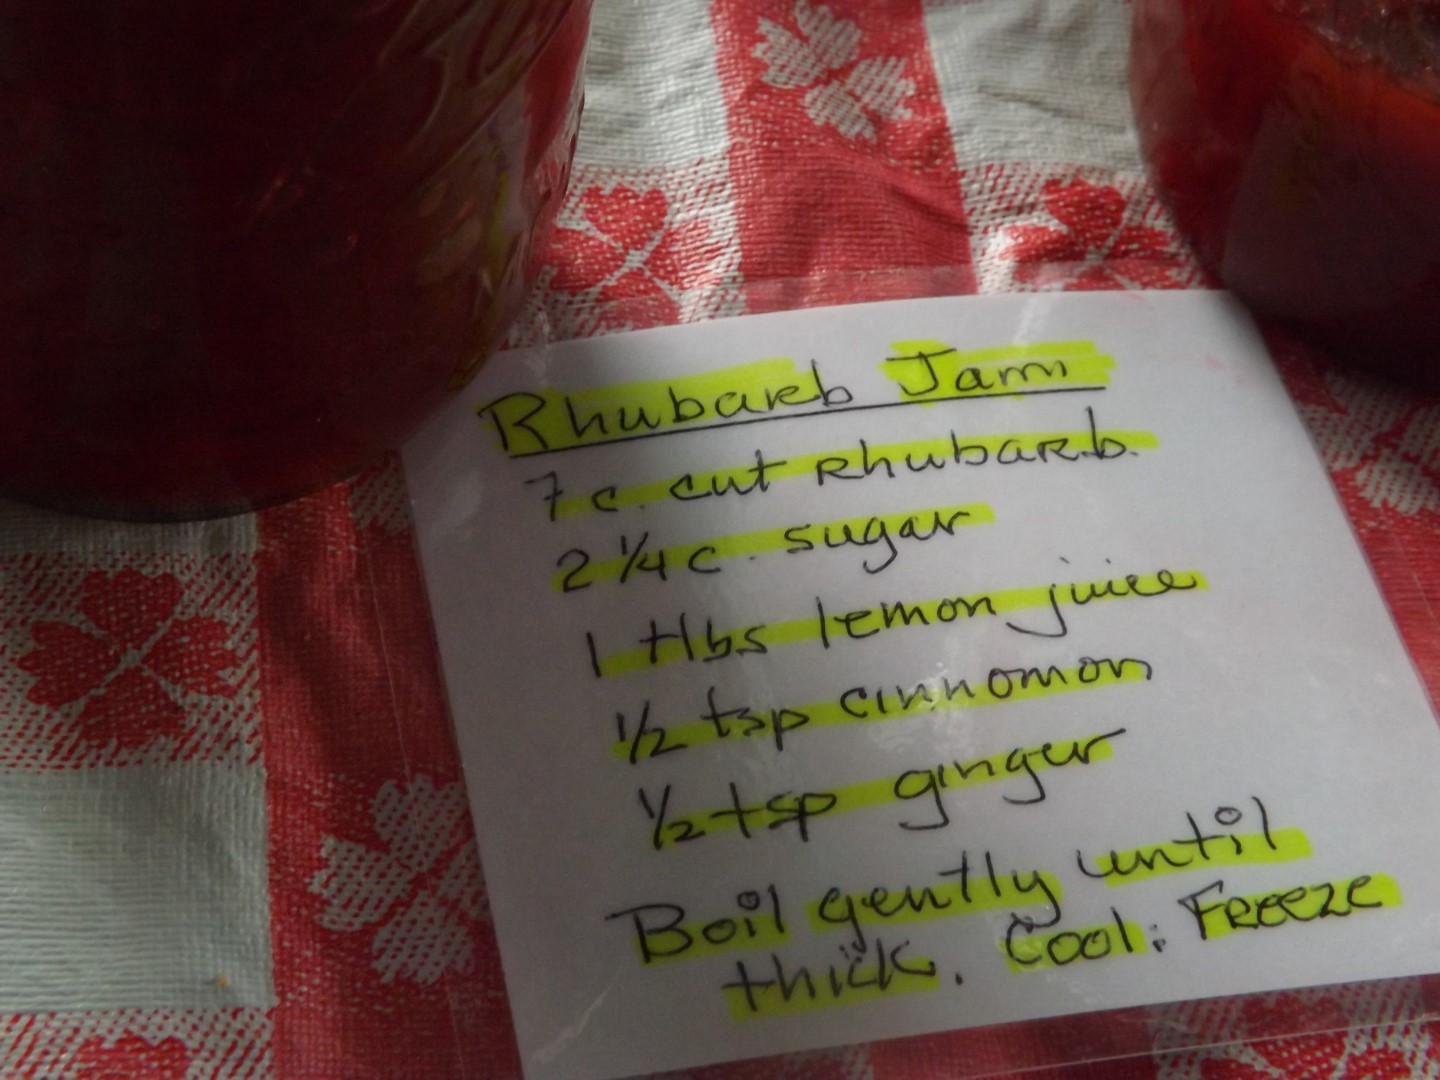 Rhubarb Jam
7 c. cut Rhubarb.
2 1/4 c. sugar
1 tlbs lemon juice
1/2 tsp cinnomon
1/2 tsp ginger
Boil gently until
thick. Cool: Freeze